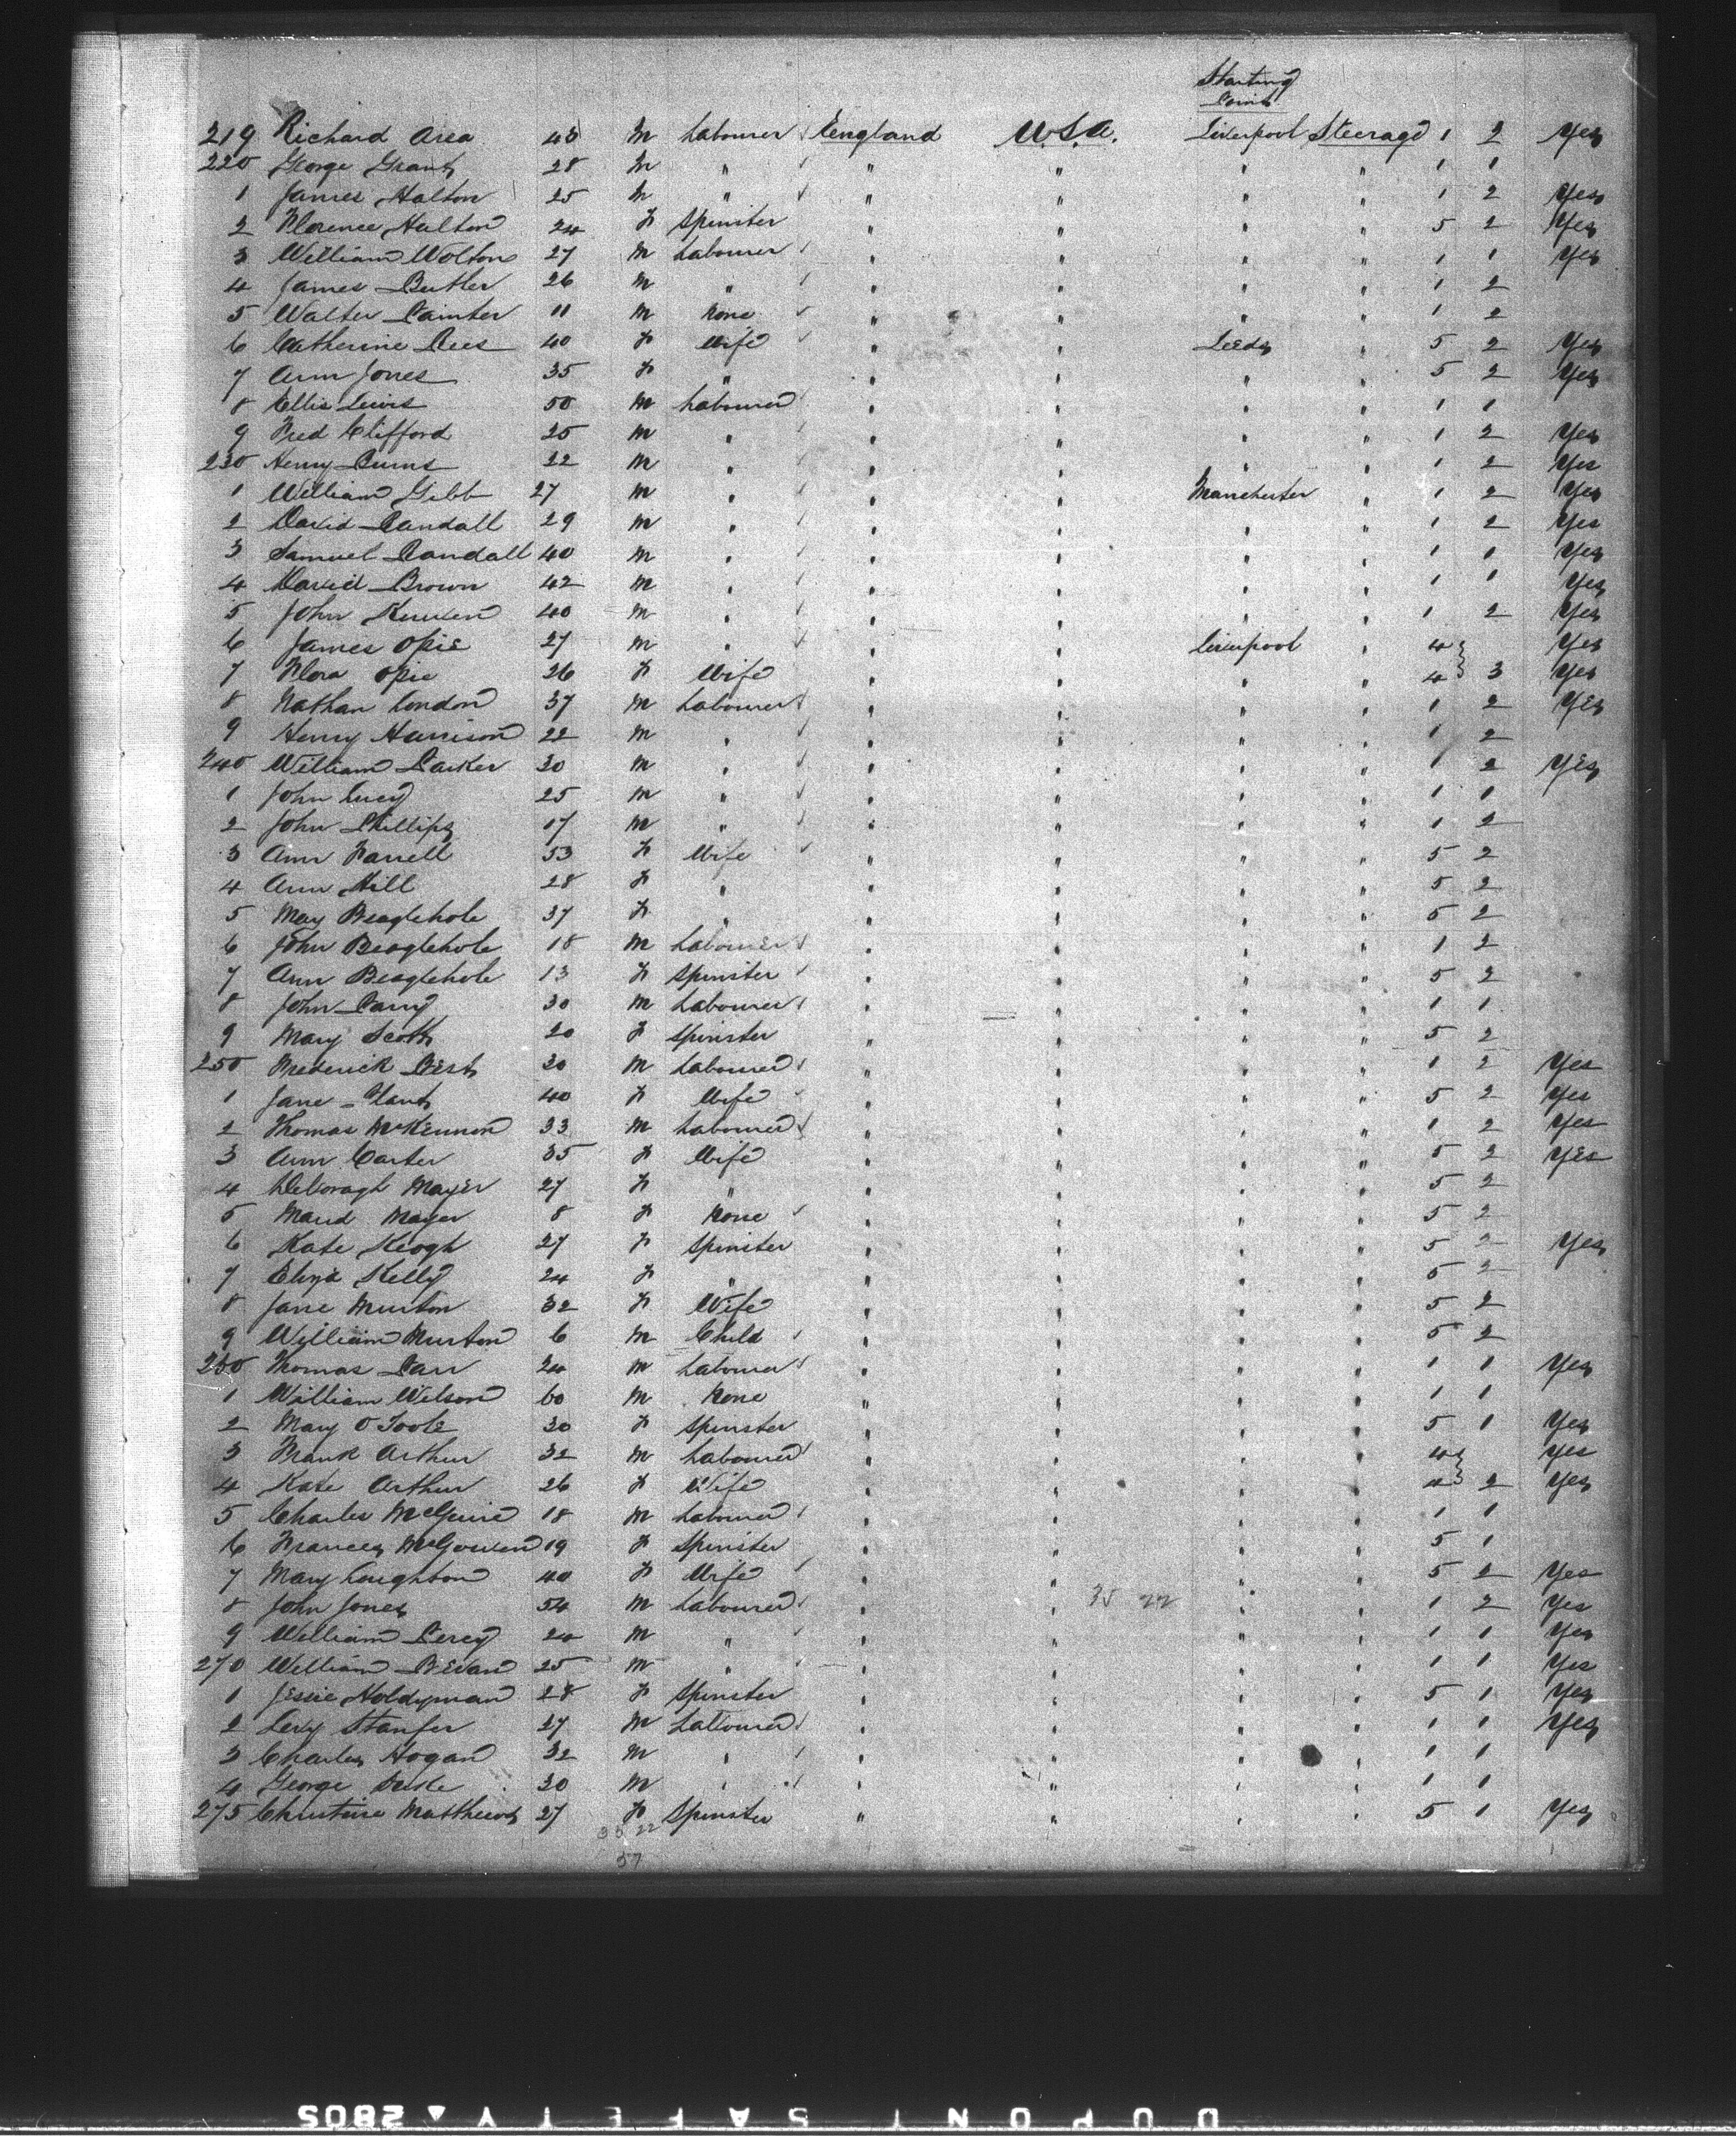 Starting
Point
219 Richard Area 43 M Labourer England U.S.A. Liverpool Steerage 1 2 Yes
220 George Grant 28 M " " " " " 1 1
1 James Halton 25 M " " " " " 1 2 Yes
2 Florence Halton 24 F Spinster " " " " 5 2 Yes
3 William Wolton 27 M Labourer " " " " 1 1 Yes
4 James Butler 26 M " " " " " 1 2
5 Walter Painter 11 M None " " " " 1 2
6 Catherine Rees 40 F Wife " " Leeds " 5 2 Yes
7 Ann Jones 35 F " " " " " 5 2 Yes
8 Ellis Lewis 50 M Labourer " " " " 1 1
9 Fred Clifford 25 M " " " " " 1 2 Yes
230 Henry Burns 22 M " " " " " 1 2 Yes
1 William Gibb 27 M " " " Manchester " 1 2 Yes
2 David Randall 29 M " " " " " 1 2 Yes
3 Samuel Randall 40 M " " " " " 1 1 Yes
4 David Brown 42 M " " " " " 1 1 Yes
5 John 40 M " " " " " 1 2 Yes
6 James Opie 27 M " " " Liverpool " 4 Yes
7 Flora Opie 26 F Wife " " " " 4 3 Yes
8 Nathan London 37 M Labourer " " " " 1 2 Yes
9 Henry Harrison 22 M " " " " " 1 2
240 William Parker 30 M " " " " " 1 2 Yes
1 John Lucy 25 M " " " " " 1 1
2 John Phillips 17 M " " " " " 1 2
3 Ann Farrell 53 F Wife " " " " 5 2
4 Ann Hill 28 F " " " " " 5 2
5 May Beaglehole 37 F " " " " " 5 2
6 John Beaglehole 18 M Labourer " " " " 1 2
7 Ann Beaglehole 13 F Spinster " " " " 5 2
8 John Parry 30 M Labourer " " " " 1 1
9 Mary Scott 20 F Spinster " " " " 5 2
250 Frederick Best 30 M Labourer " " " " 1 2 Yes
1 Jane 40 F Wife " " " " 5 2 Yes
2 Thomas McKennon 33 M Labourer " " " " 1 2 Yes
3 Ann Carter 35 F Wife " " " " 5 2 Yes
4 Deboragh Mayer 27 F " " " " " 5 2
5 Maud Mayer 8 F None " " " " 5 2
6 Kate Keogh 27 F Spinster " " " " 5 2 Yes
7 Eliza Kelly 24 F " " " " " 5 2
8 Jane Murton 32 F Wife " " " " 5 2
9 William Murton 6 M Child " " " " 5 2
260 Thomas Parr 24 M Labourer " " " " 1 1 Yes
1 William Wilson 60 M None " " " " 1 1
2 Mary O Toole 30 F Spinster " " " " 5 1 Yes
3 Frank Arthur 32 M Labourer " " " " 4 Yes
4 Kate Arthur 26 F Wife " " " " 4 2 Yes
5 Charles McGuire 18 M Labourer " " " " 1 1
6 Frances McGowen 19 F Spinster " " " " 5 1
7 Mary Leighton 40 F Wife " " " " 5 2 Yes
8 John Jones 54 M Labourer " " 35 22 " " 1 2 Yes
9 William Percy 20 M " " " " " 1 1 Yes
270 William Bevan 25 M " " " " " 1 1 Yes
1 Jessie Holdyman 28 F Spinster " " " " 5 1 Yes
2 Levy Stanfer 27 M Labourer " " " " 1 1 Yes
3 Charles Hogan 32 M " " " " " 1 1
4 George 30 M " " " " " 1 1
275 Christine Matthews 27 F Spinster " " " " 5 1 Yes
35 22
57
DUPONT SAFETY ▲ 2805